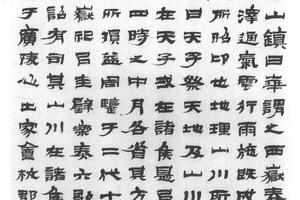 山鎮曰華謂之西嶽春
澤通氣雲行雨施既成
所昭卬也地理山川所
曰天子祭天地及山川
在天子或在諸侯是以
四時之中月各省其方
所損益周鑒于二代十
嶽祀以圭璧樂奏六歌
詔有司其山川在諸侯
于廣陵出家會郡